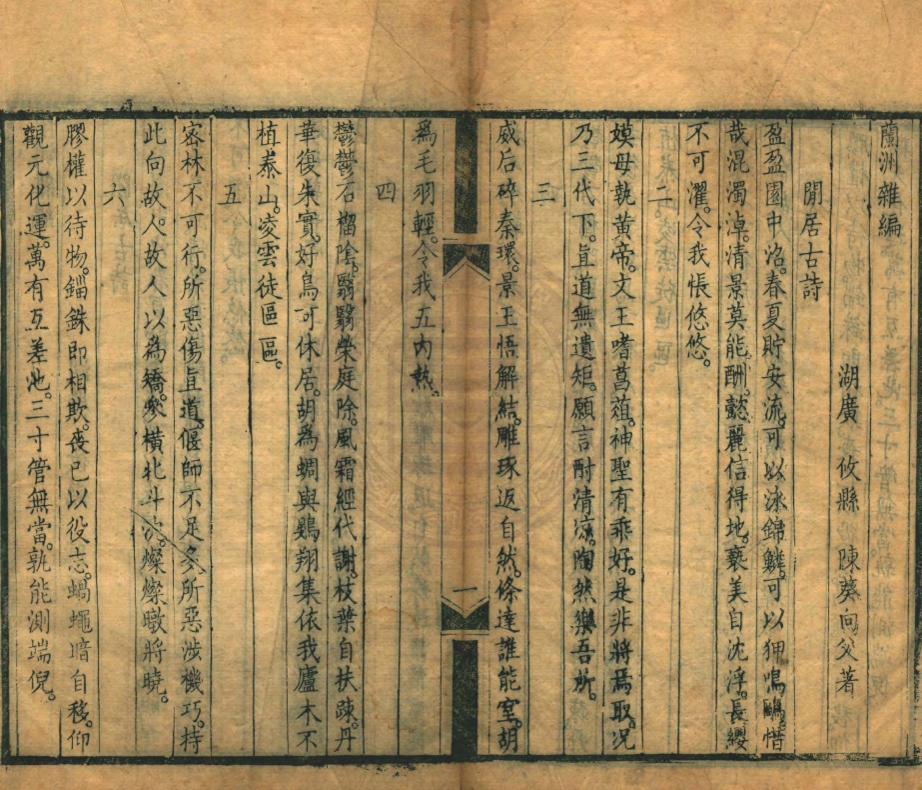 蘭洲雜編
閒居古詩
湖廣 攸縣 陳葵向父著
盈盈園中沼。春夏貯安流。可以泳錦鱗。可以狎鳴鷗。惜
哉混濁淖。清景莫能酬。懿麗信得地。褻美自沈浮。長纓
不可濯。令我悵悠悠。
二
嫫母執黃帝。文王嗜菖菹。神聖有乖好。是非將焉取。况
乃三代下。直道無遺矩。願言酎清凉。陶然樂吾所。
三
威后碎秦環。景王悟解結。雕琢返自然。條達誰能窒。胡
一
爲毛羽輕。令我五內熱。
四
鬱鬱石榴陰。翳翳榮庭除。風霜經代謝。枝葉自扶疎。丹
華復朱實。好鳥可休居。胡爲蜩與鷃。翔集依我廬。木不
植泰山。凌雲徒區區。
五
密林不可行。所惡傷直道。偃師不足多。所惡涉機巧。持
此向故人。故人以為矯。參橫北斗次。燦燦暾將曉。
六
膠權以待物。錙銖即相欺。喪已以役志。蝸蠅暗自移。仰
觀元化運。萬有互差池。三寸管無當。孰能測端倪。